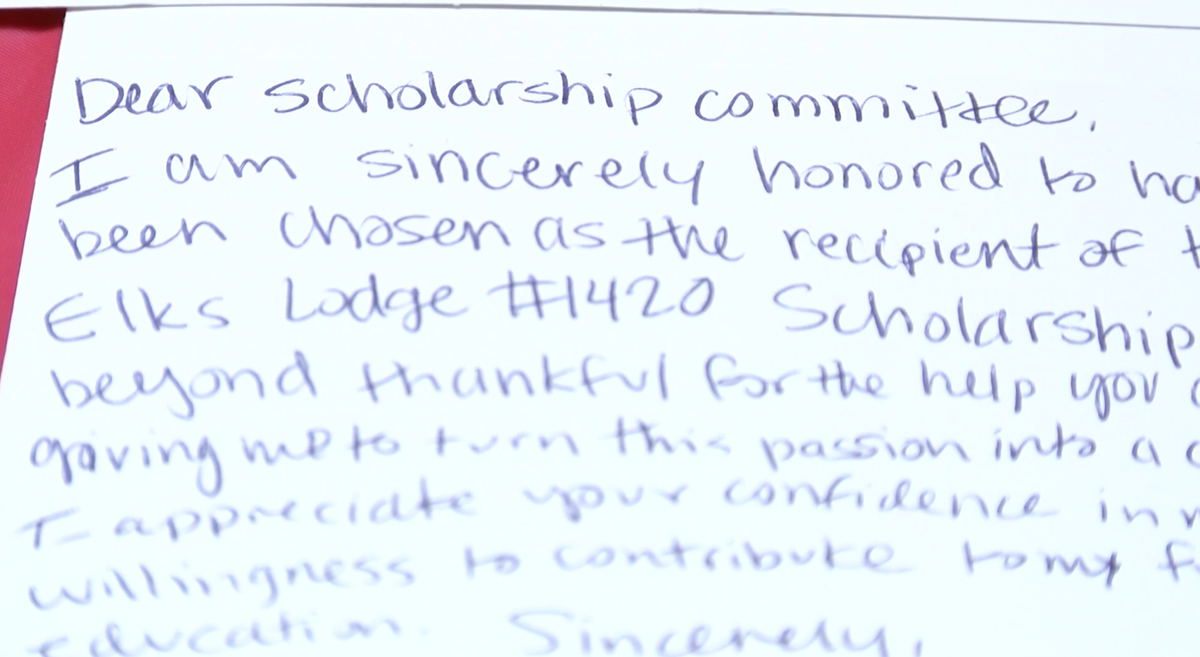 Dear scholarship committee,
I am sincerely honored to ha
been chosen as the recipient of t
Elks Lodge #1420 Scholarship
beyond thankful for the help you
giving me to turn this passion into a c
I appreciate your confidence in
willingness to contribute to my f
education. Sincerely,